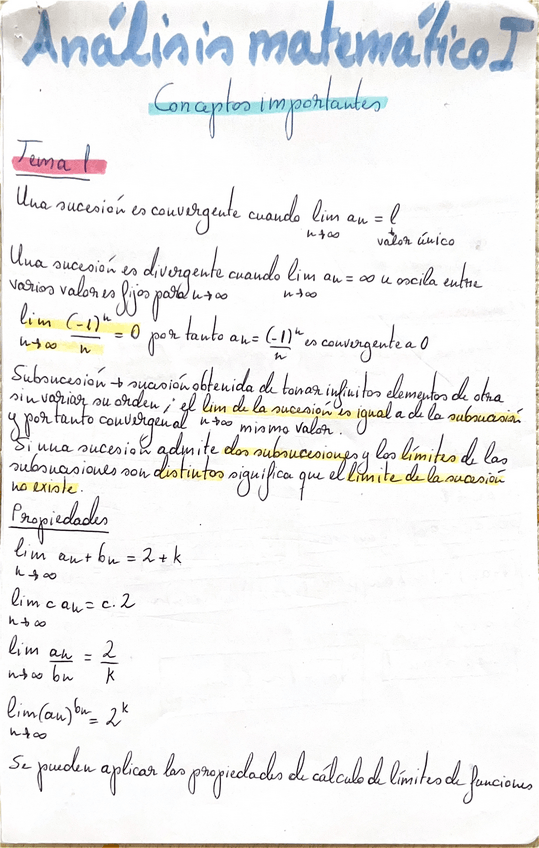 Análisis matemático I
Conceptos importantes
Tema 1
Una sucesión es convergente cuando lim an = l
n→∞ valor único
Una sucesión es divergente cuando lim an = ∞ u oscila entre
varios valores fijos para n→∞ n→∞
lim (-1)^n/n = 0 por tanto an = (-1)^n/n es convergente a 0
n→∞
Subsucesión → sucesión obtenida de tomar infinitos elementos de otra
sin variar su orden; el lim de la sucesión es igual a de la subsucesión
y por tanto convergen al n→∞ mismo valor.
Si una sucesión admite dos subsucesiones y los límites de las
subsucesiones son distintos significa que el límite de la sucesión
no existe.
Propiedades
lim an + bn = 2 + k
n→∞
lim c an = c. 2
n→∞
lim an/bn = 2/k
n→∞
lim (an)^bn = 2^k
n→∞
Se pueden aplicar las propiedades de cálculo de límites de funciones